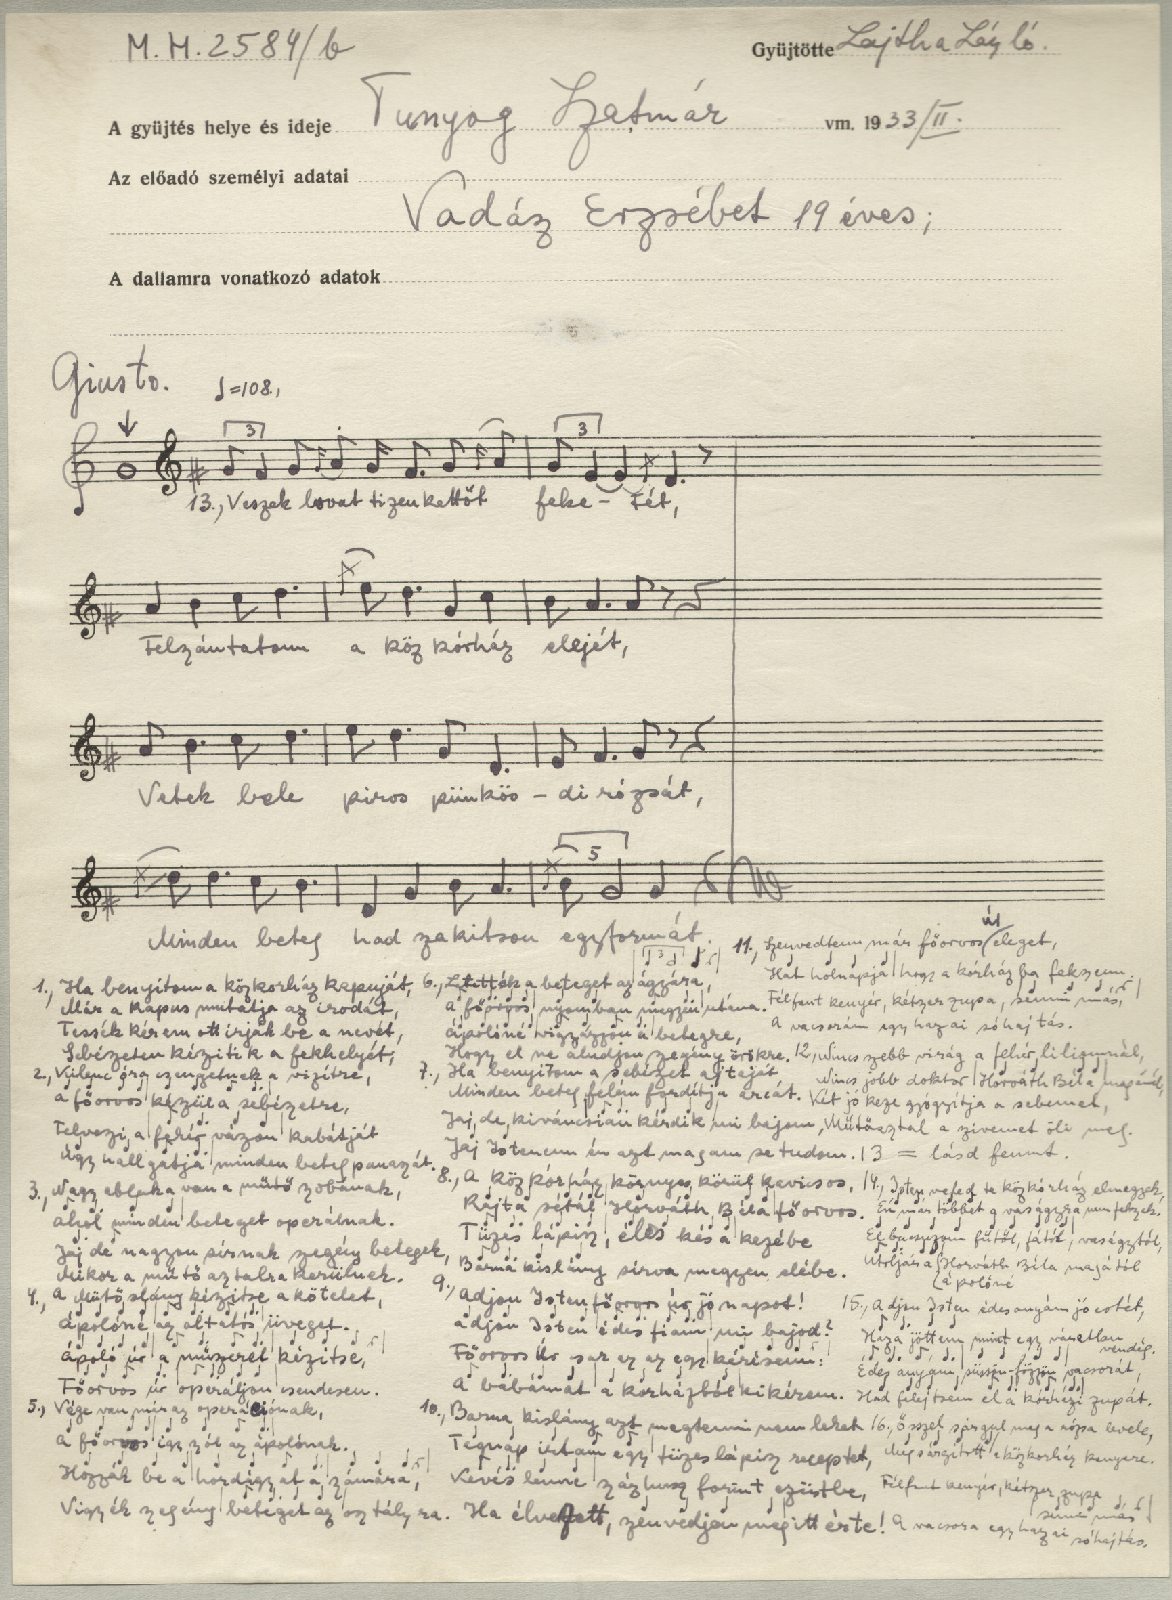 M. H. 2584/b
Gyüjtötte Lajtha László.
A gyüjtés helye és ideje Tunyog Szatmár vm. 1933/II.
Az előadó személyi adatai
Vadáz Erzsébet 19 éves;
A dallamra vonatkozó adatok
Giusto. ♩=108.,
3 3
13., Veszek lovat tizenkettőt feke - tét,
Felzántatom a közkórház elejét,
Vetek bele piros pünkös - di rózsát,
5
Minden beteg had szakitson egyformát.
1., Ha benyitom a közkorház kapuját,
Már a kapus mutatja az irodát,
Tessék kérem ott irják be a nevét,
Sebészeten készitik a fekhelyét;
2., Kilenc óra csengetnek a vizitre,
a főorvos készül a sebészetre,
Felveszi a fehér vászon kabátját
Ugy hallgatja minden beteg panaszát.
3., Nagy ablaka van a műtő szobának,
ahol minden beteget operálnak.
Jaj de nagyon sirnak szegény betegek,
Mikor a műtő asztalra kerülnek.
4., A Műtőslány készitse a kötelet,
ápolóné az altatós üveget.
ápoló úr a műszerét készitse,
Főorvos úr operáljon csendesen.
5., Vége van már az operációnak,
a főorvos igy szól az ápolónak.
Hozzák be a hordágyat a számára,
Vigyék szegény beteget az osztályra.
6., Letették a beteget az ágyára,
a főorvos nyomban megyen utána.
ápolóné vigyázzon a betegre,
Hogy el ne aludjon szegény örökre.
7., Ha benyitom a sebészet ajtaját
Minden beteg felém forditja arcát.
Jaj, de kiváncsian kérdik mi bajom,
Jaj Istenem én azt magam se tudom.
8., A közkórház környes körül kavicsos,
Rajta sétál Horváth Béla főorvos.
Tüzes lápisz, éles kés a kezébe
Barna kislány sirva megyen elébe.
9., Adjon Isten főorvos úr jó napot!
adjon Isten édes fiam mi bajod?
Főorvos úr csak ez az egy kérésem:
A babámat a korházból kikérem.
10., Barna kislány azt megtenni nem lehet
Tegnap irtam egy tüzes lápisz receptet,
Kevés lenne száz forint ezüstbe,
Ha élvezett, szenvedjen meg itt érte!
11., Szenvedtem már főorvos úr eleget,
Hát holnapja hogy a kórházba fekszem.
Félfont kenyér, kétszer zupa, semmi más,
A vacsorám egy hazai sóhajtás.
12., Nincs szebb virág a fehér liliomnál,
Nincs jobb doktor Horváth Béla magánál,
Két jó keze gyógyitja a sebemet,
Műtőasztal a szivemet öli meg.
13 = lásd fennt.
14., Isten veled te közkórház elmegyek,
Én már többet a vaságyra nem fekszek.
Elbucsuzom fűtől, fától, vaságytól,
Utoljára Horváth Béla magától
ápolóné
15., Adjon Isten édesanyám jó estét,
Haza jöttem, mint egy váratlan vendég.
Édes anyám, süssön-főzzön vacsorát,
Had felejtsem el a kórházi zupát.
16., Ősszel sárgul meg a rózsa levele,
Megsárgitott a közkorház kenyere.
Félfont kenyér, kétszer zupa
semmi más
A vacsora egy hazai sóhajtás.